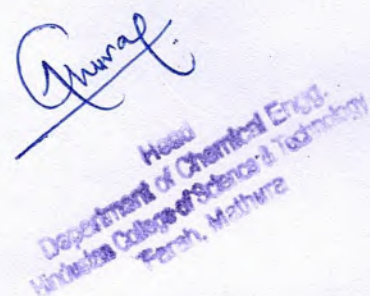 Head
Department of Chemical Engg.
Hindustan College of Science & Technology
Farah, Mathura